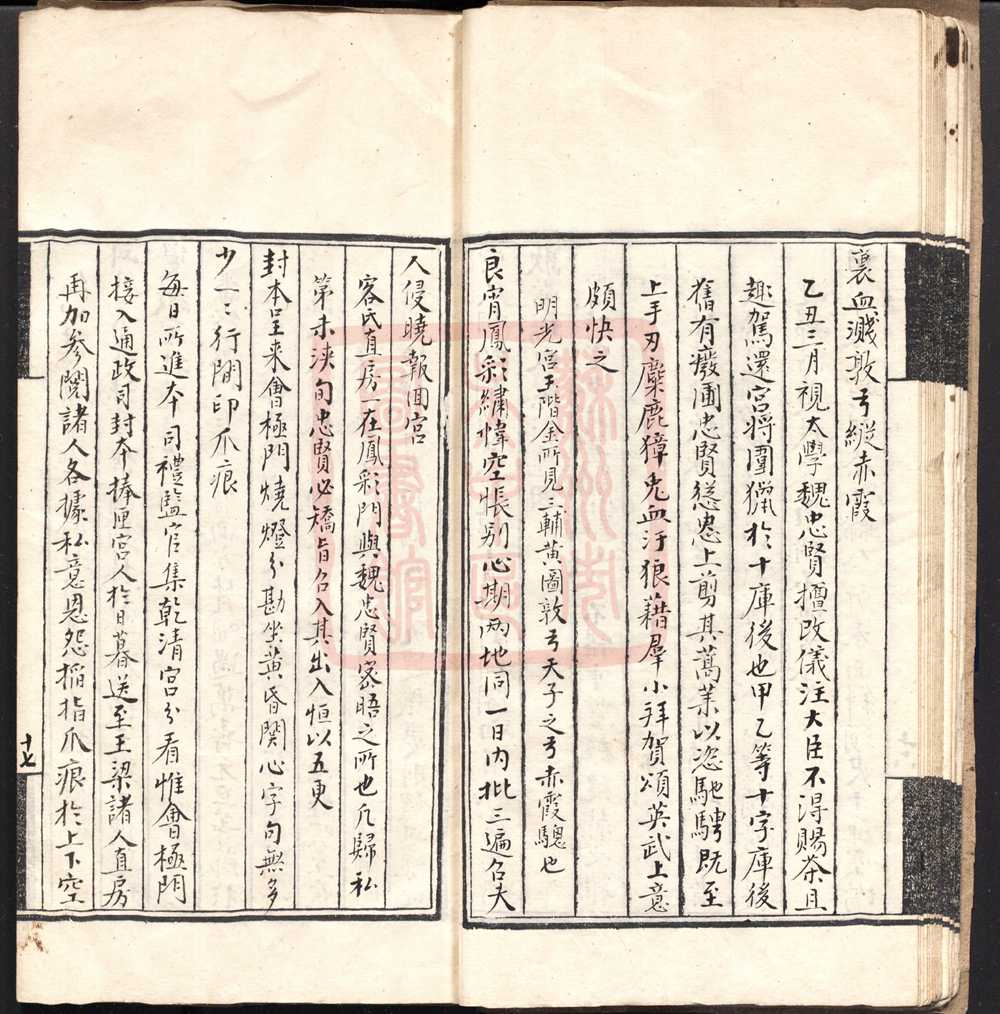 裏血濺敦弓縱赤霞
乙丑三月視太學魏忠賢擅改儀注大臣不得賜茶且
趣駕還宮將圍獵於十庫後也甲乙等十字庫後
舊有廢圃忠賢慫恿上剪其蒿萊以恣馳騁既至
上手刃麋鹿獐兎血汙狼藉羣小拜賀頌英武上意
頗快之
明光宮玉階金所見三輔黃圖敦弓天子之弓赤霞驄也
良宵鳳彩繡幃空悵别心期兩地同一日內批三遍召夫
人侵曉報聞宮
客氏直房一在鳳彩門與魏忠賢密晤之所也凡歸私
第未浹旬忠賢必矯旨召入其出入恒以五更
封本呈來會極門燒燈分勘坐黃昏関心字句無多
少一二行間印爪痕
每日所進本司禮監官集乾清宮分看惟會極門
接入通政司封本捧匣宮人於日暮送至王梁諸人直房
再加參閱諸人各據私意恩怨搯指爪痕於上下空
十七